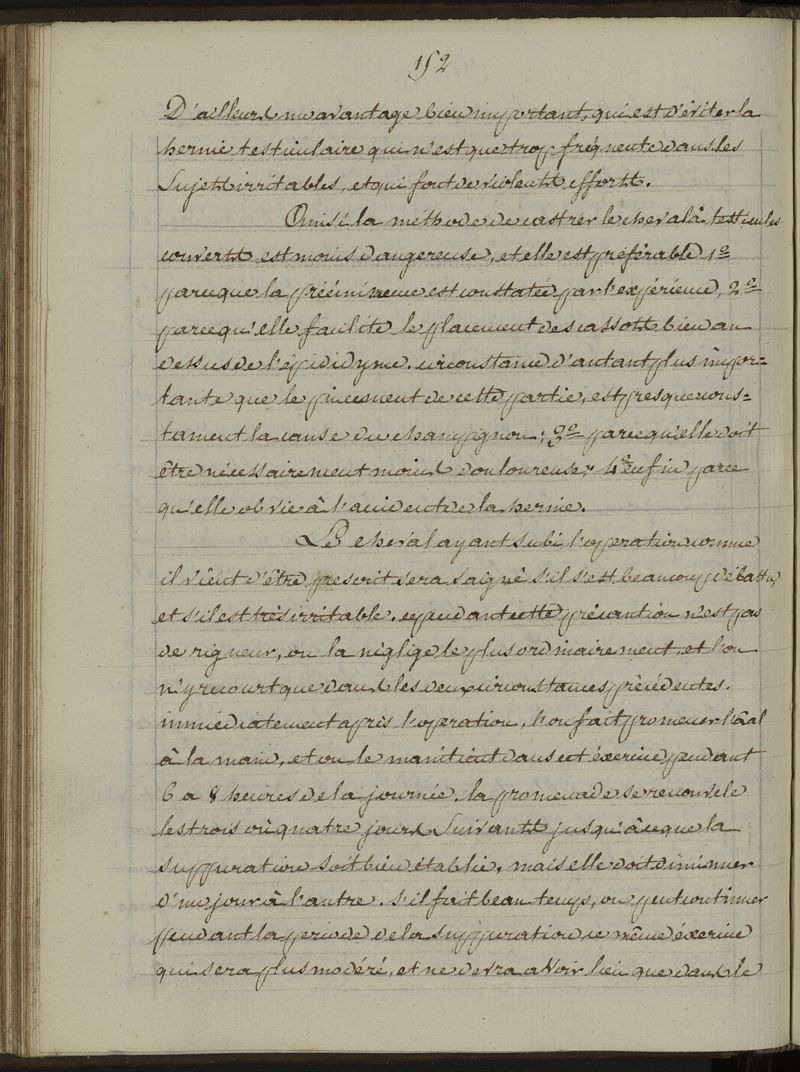 152
D'ailleurs un avantage bien important, qui est d'éviter la
hernie testiculaire qui n'est que trop fréquente dans les
Sujets irritables, et qui font de violents efforts.
Ainsi la méthode de castrer le cheval à testicules
couverts est moins dangereuse, et elle est préférable 1º
parceque la prééminence est constatée par l'expérience, 2º
parcequ'elle facilite le placement des cassots bien au
dessus de l'épididyme. circonstance d'autant plus impor=
tante que le pincement de cette partie, est presque cons=
tament la cause du champignon; 3º parcequ'elle doit
être nécessairement moins douloureuse; 4º enfin parce
qu'elle obvie à l'accident de la hernie.
Le cheval ayant subi l'operation comme
il vient d'être prescrit sera saigné s'il s'est beaucoup débattu,
et s'il est très irritable. cependant cette précaution n'est pas
de rigueur, on la néglige le plus ordinairement et l'on
n'y recourt que dans les deux circonstances précédentes.
immédiatement après l'operation, l'on fait promener l'âal
à la main, et on le maintient dans cet éxercice pendant
6 a 8 heures de la journée. la promenade se renouvele
les trois où quatre jours Suivants jusqu'à ce que la
suppuration soit bien établie, mais elle doit diminuer
d'un jour à l'autre. s'il fait beau temps, on peut continuer
pendant la periode de la suppuration ce même éxercice
qui sera plus modéré, et ne devra avoir lieu que dans le